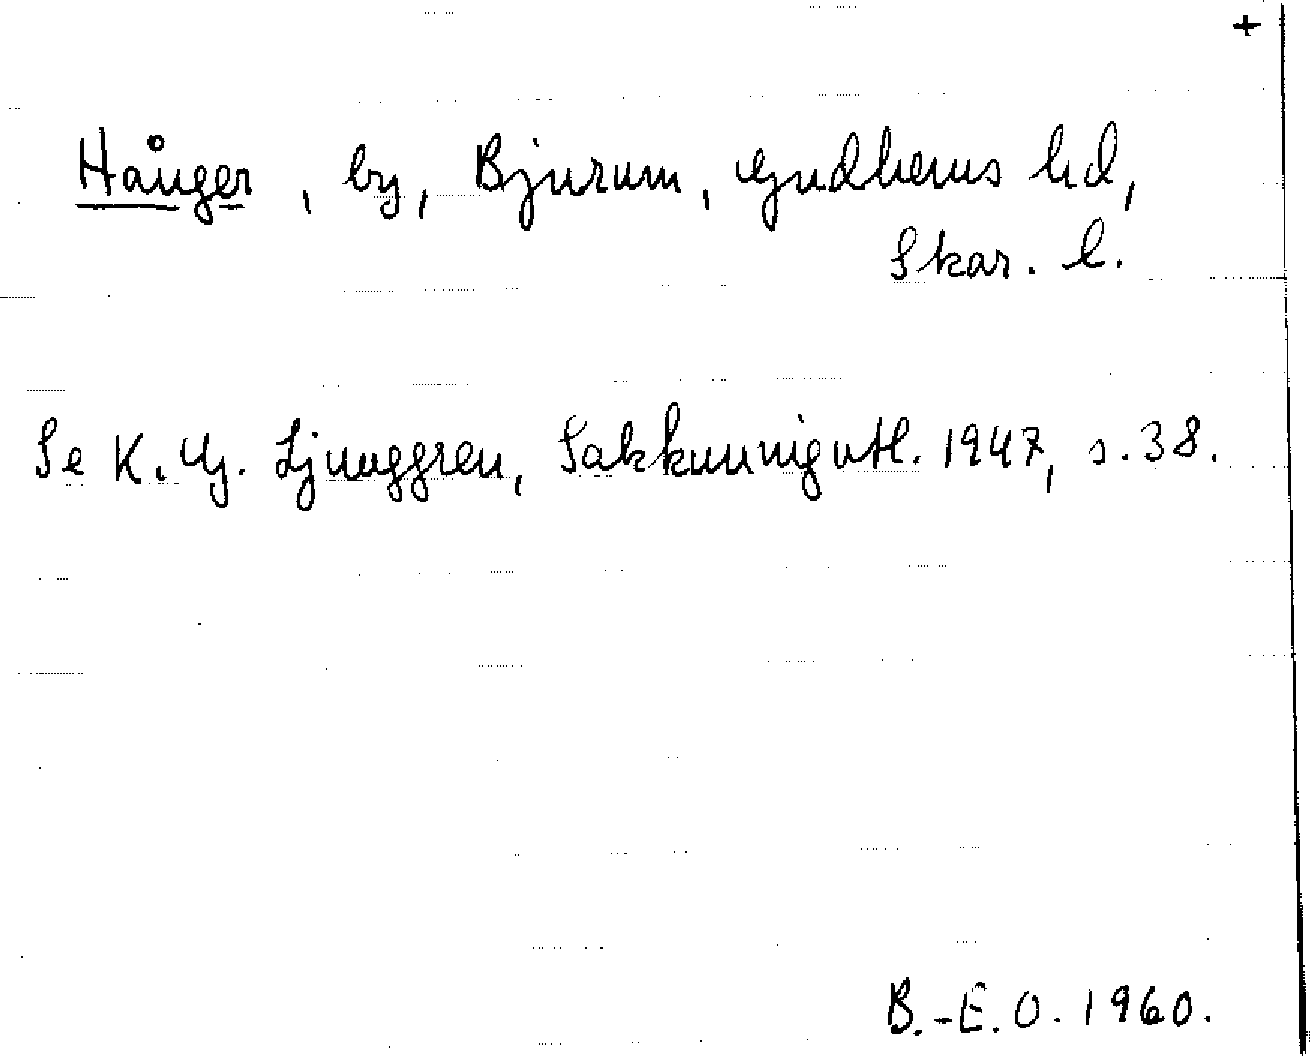 +
Hånger, by, Bjurum, Gudhems hd,
Skar. l.
Se K. G. Ljunggren, Sakkunnigutl. 1947, s. 38.
B.-E. O. 1960.